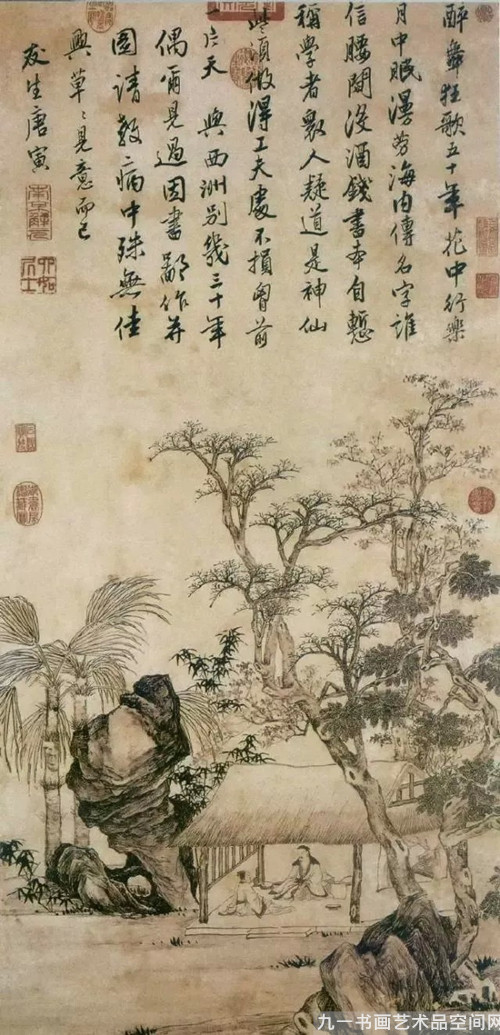 醉舞狂歌五十年花中行樂
月中眠漫勞海內傳名字誰
信腰間沒酒錢書本自慙
稱學者眾人疑道是神仙
些須做得工夫處不損胷前
一片天 與西洲別幾三十年
偶爾見過因書鄙作并
圖請教病中殊無佳
興草〻見意而已
友生唐寅
南京解元
六如居士
九一书画艺术品空间网